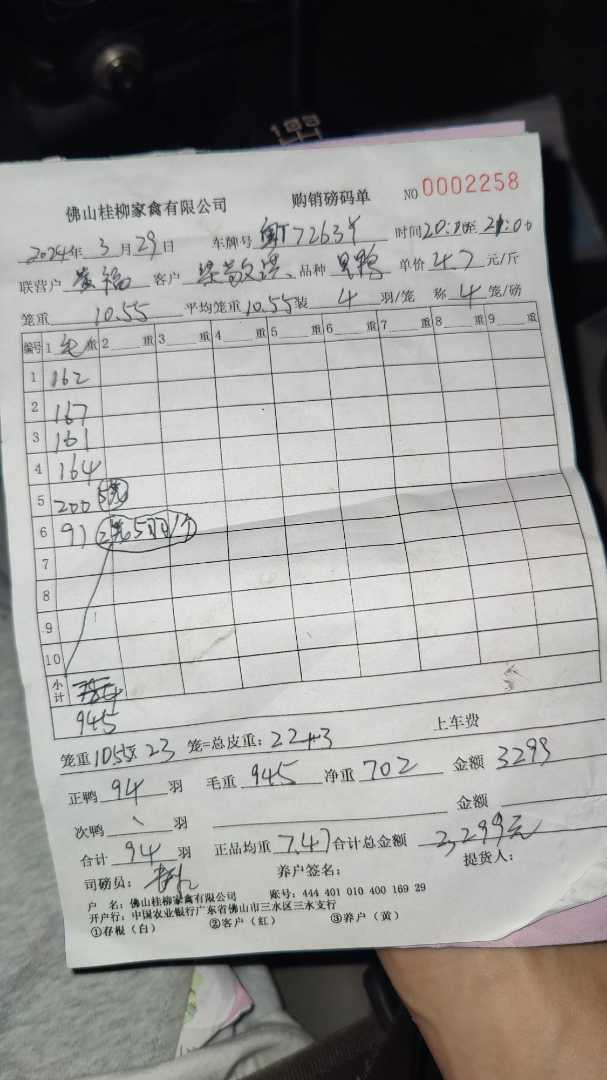 佛山桂柳家禽有限公司 购销磅码单 NO 0002258
2024年 3 月 29 日 车牌号 T72634 时间 20:20至 21:00
联营户 福 客户 品种 单价 4.7 元/斤
笼重 10.55 平均笼重 10.55 装 4 羽/笼 称 4 笼/磅
编号 1 毛 重 2 重 3 重 4 重 5 重 6 重 7 重 8 重 9 重
1 162
2 167
3 161
4 164
5 200 5笼
6 91 2笼5羽1个
7
8
9
10
小计
945
笼重 10.55x 23 笼=总皮重: 243 上车费
正鸭 94 羽 毛重 945 净重 702 金额 3299
次鸭 羽 金额
合计 94 羽 正品均重 7.47 合计总金额 3,299元
司磅员: 养户签名: 提货人:
户 名: 佛山桂柳家禽有限公司 账号: 444 401 010 400 169 29
开户行: 中国农业银行广东省佛山市三水区三水支行
①存根(白) ②客户(红) ③养户(黄)